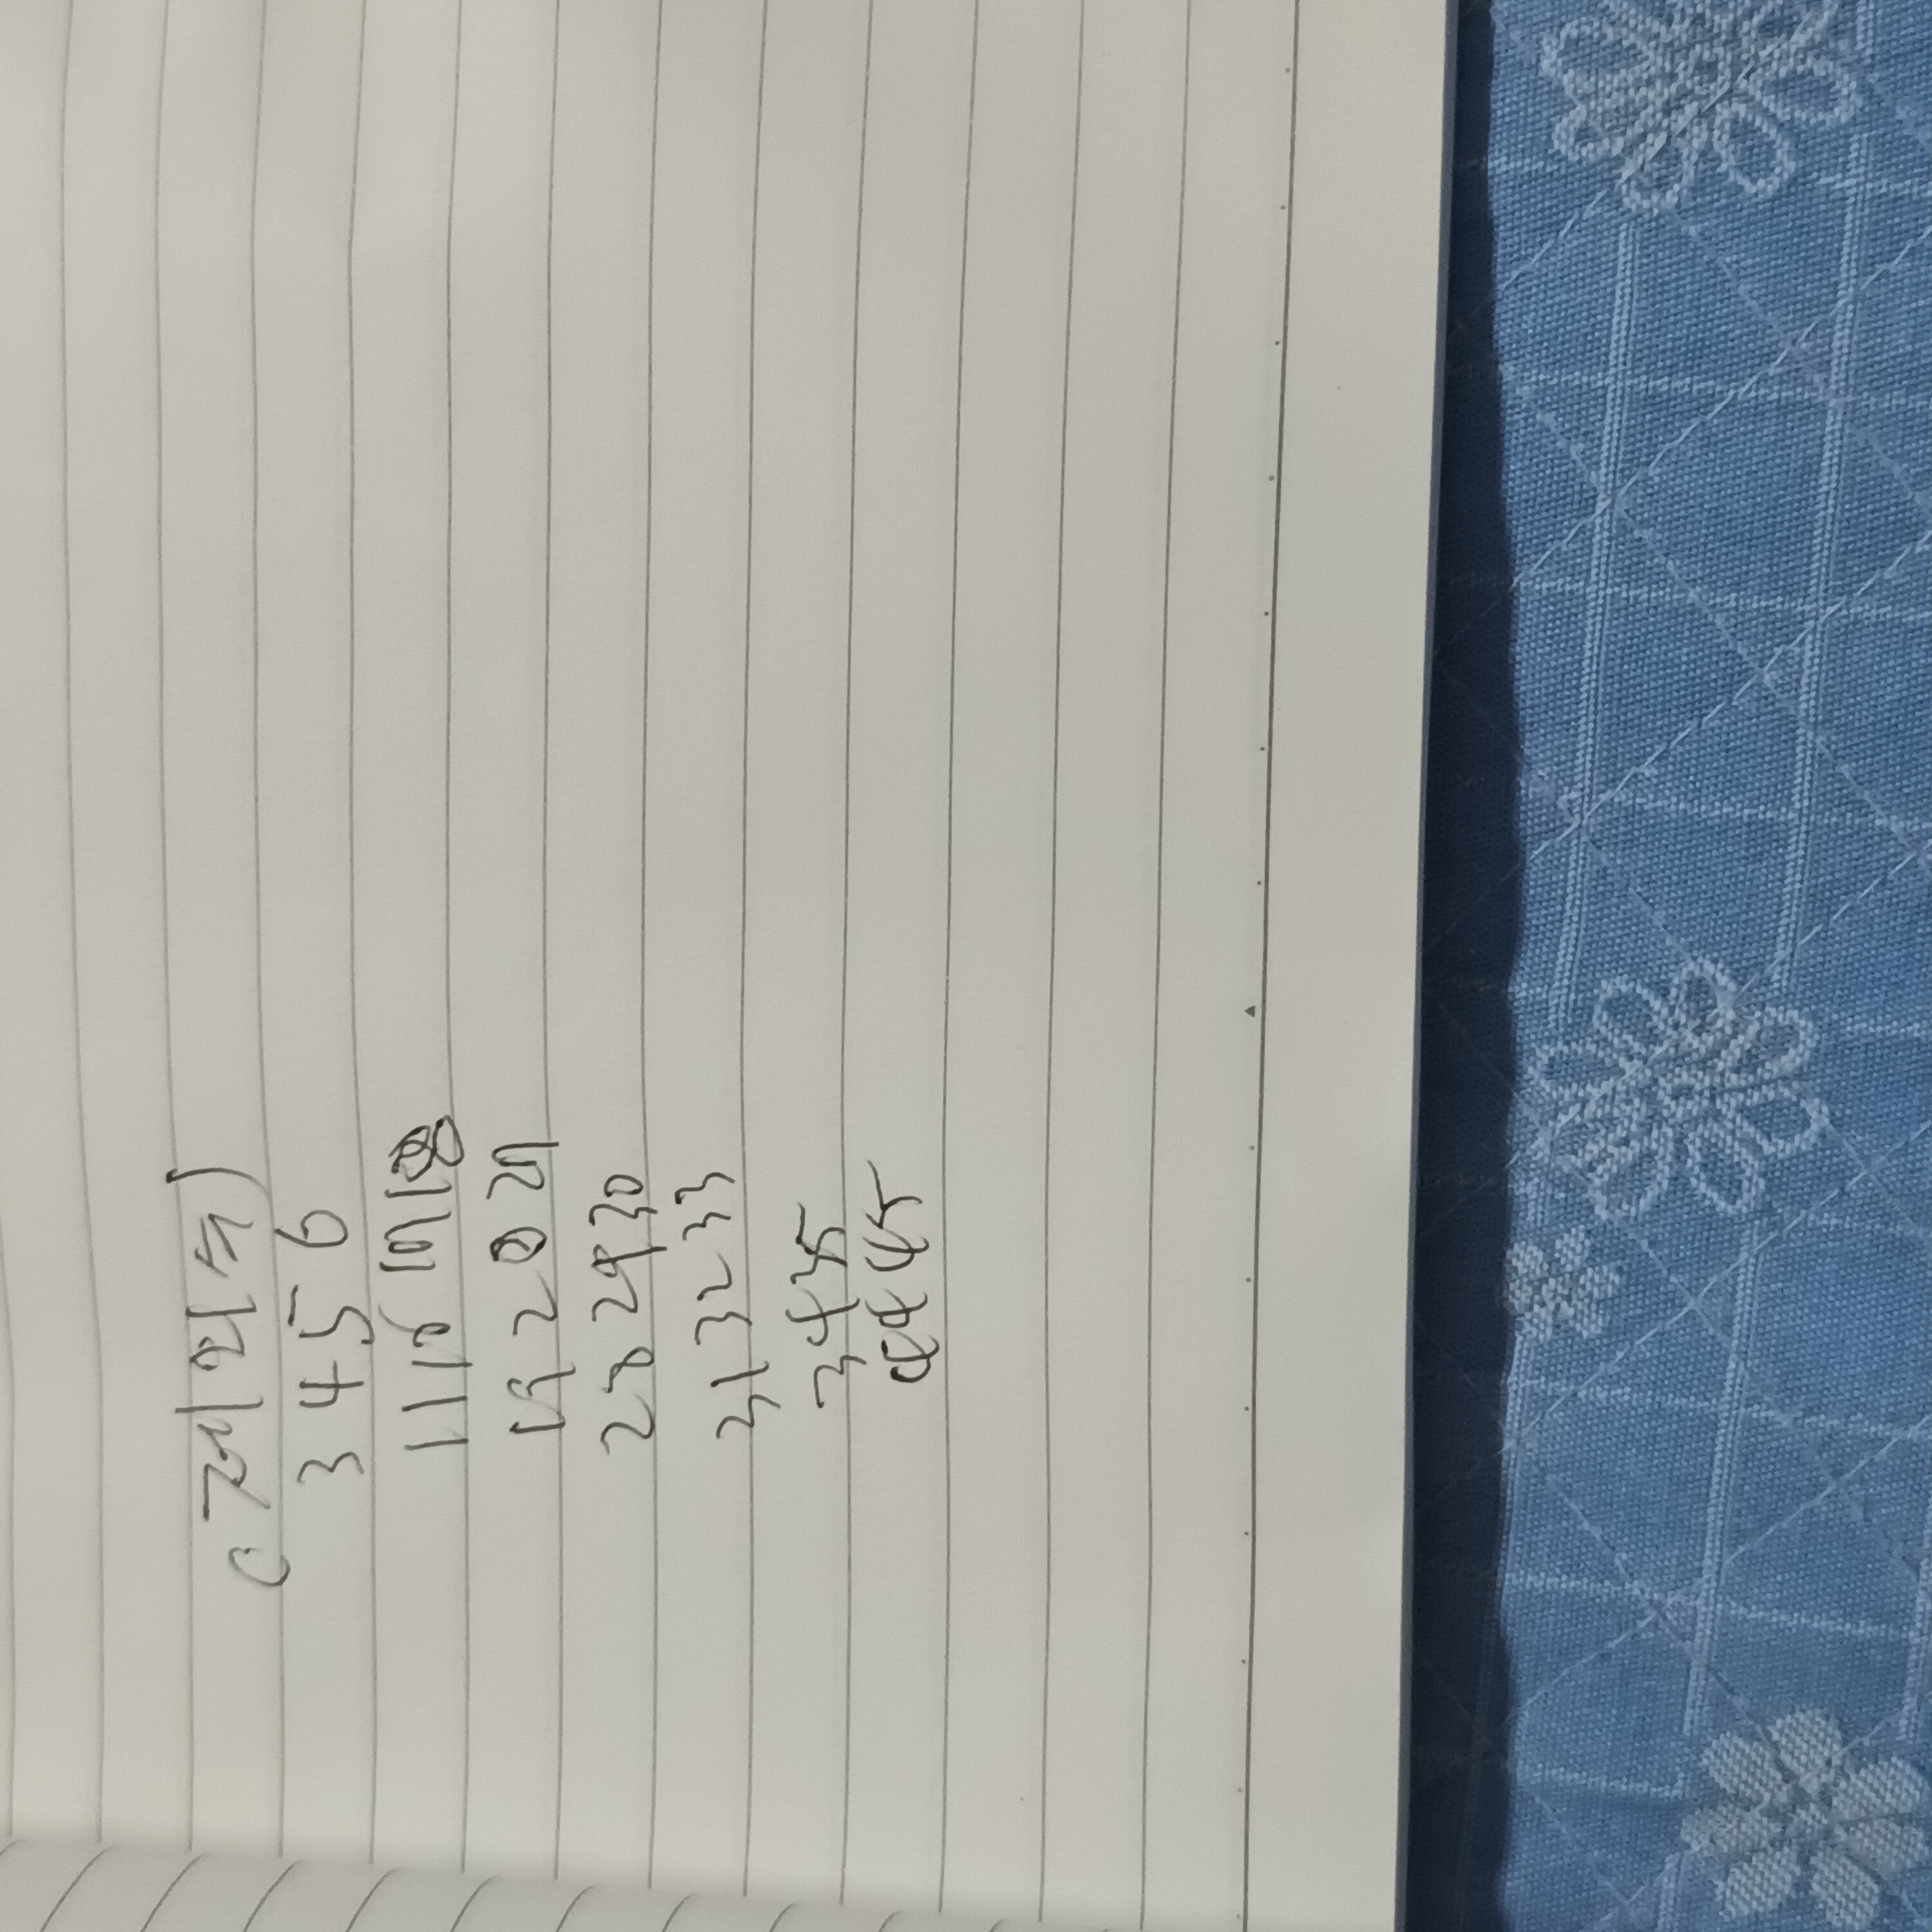 (제외수)
3 4 5 6
11 16 17 18
19 20 21
28 29 30
31 32 33
34 35
44 45